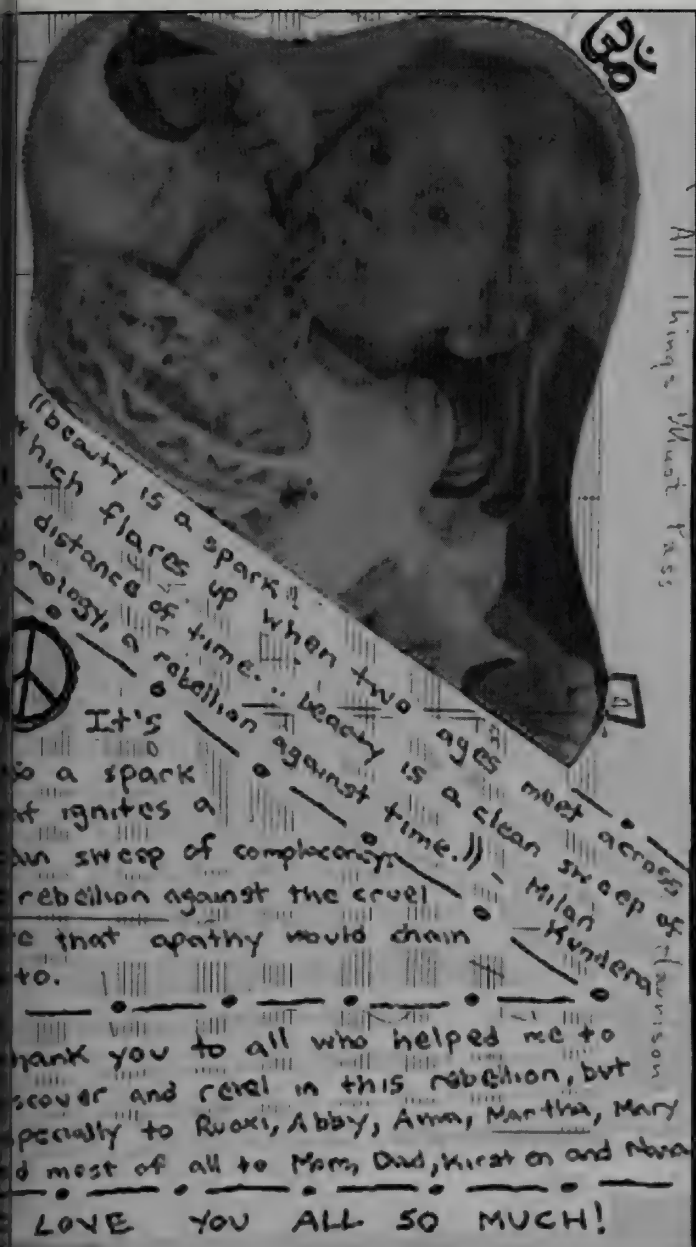 ॐ
All Things Must Pass
Harrison
"beauty is a spark
which flares up when two ages meet across
distance of time... beauty is a clean sweep of
onology, a rebellion against time.)) - Milan
Kundera
It's
so a spark
at ignites a
an sweep of complacency,
rebellion against the cruel
e that apathy would chain
to.
hank you to all who helped me to
scover and revel in this rebellion, but
pecially to Ruaxi, Abby, Anna, Martha, Mary
d most of all to Mom, Dad, Kirsten and Nana
LOVE YOU ALL SO MUCH!